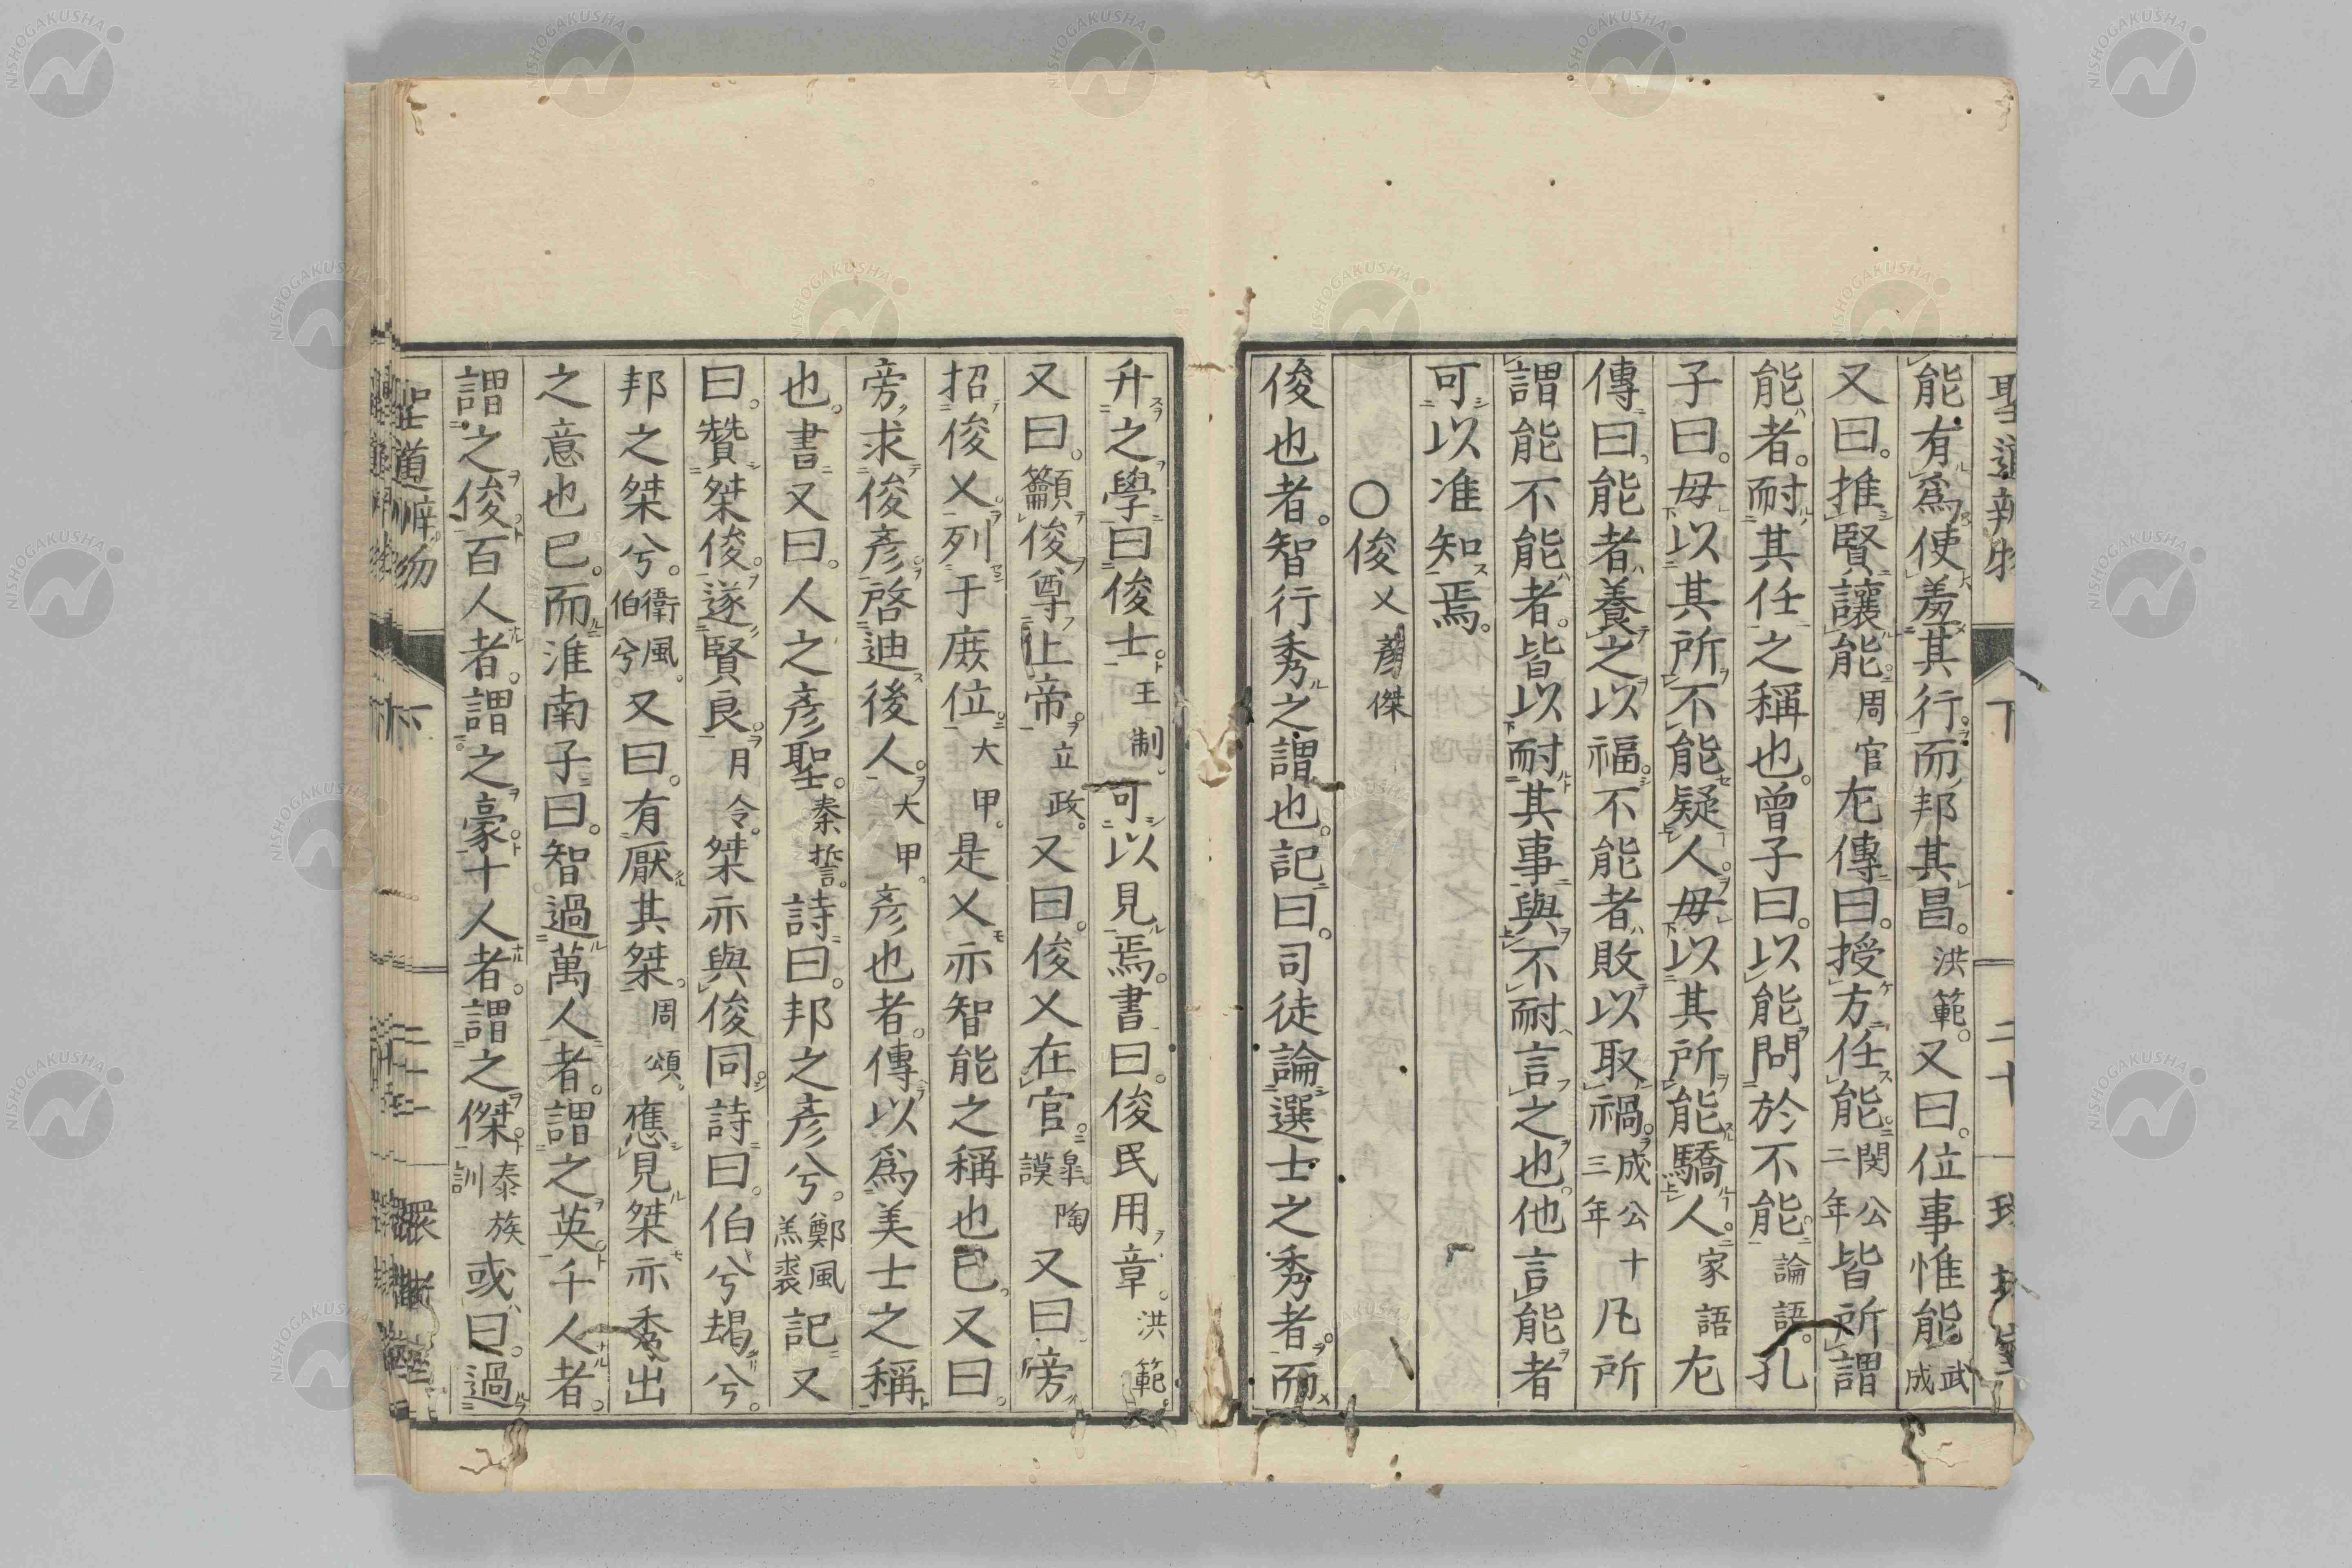 能有爲使羞其行而邦其昌。洪範。又曰。位事惟能武成
又曰。推賢讓能。周官左傳曰。授方任能。閔公二年皆所謂
能者。耐其任之稱也。曾子曰。以能問於不能。論語。孔
子曰。毋以其所不能疑人。毋以其所能驕人。家語左
傳曰能者養之以福。不能者敗以取禍。成公十三年凡所
謂能不能者。皆以耐其事與不耐言之也。他言能者
可以准知焉。
○俊乂彥傑
俊也者。智行秀之謂也。記曰。司徒論選士之秀者。而
升之學曰俊士。王制。可以見焉。書曰。俊民用章。洪範。
又曰。籲俊尊上帝。立政。又曰。俊乂在官。皐陶謨又曰。旁
招俊乂。列于庶位。大甲。是乂亦智能之稱也已。又曰。
旁求俊彥。啓迪後人。大甲。彥也者。傳以爲美士之稱
也。書又曰。人之彥聖。秦誓。詩曰。邦之彥兮。鄭風羔裘記又
曰。贊桀俊。遂賢良。月令。桀亦與俊同。詩曰。伯兮朅兮。
邦之桀兮。衛風。伯兮。又曰。有厭其桀。周頌。應見桀亦秀出
之意也已。而淮南子曰。智過萬人者。謂之英。千人者。
謂之俊。百人者。謂之豪。十人者。謂之傑。泰族訓或曰。過
聖道辨物 下